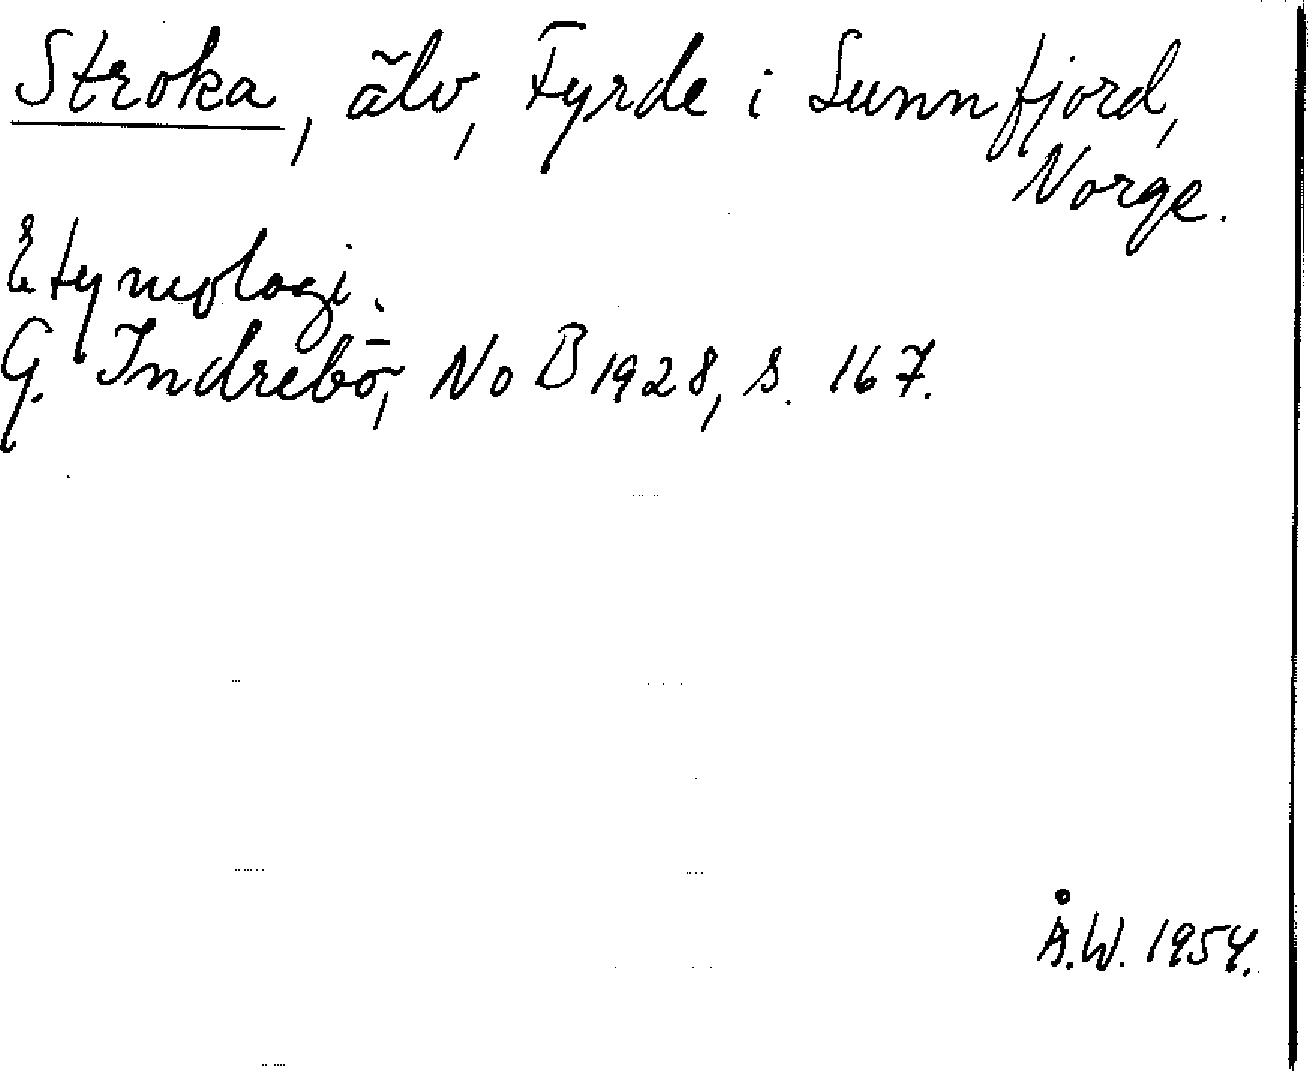 Stroka, älv, Fyrde i Sunnfjord,
Norge.
Etymologi.
G. Indrebö, NoB 1928, s. 167.
Å.W. 1954.